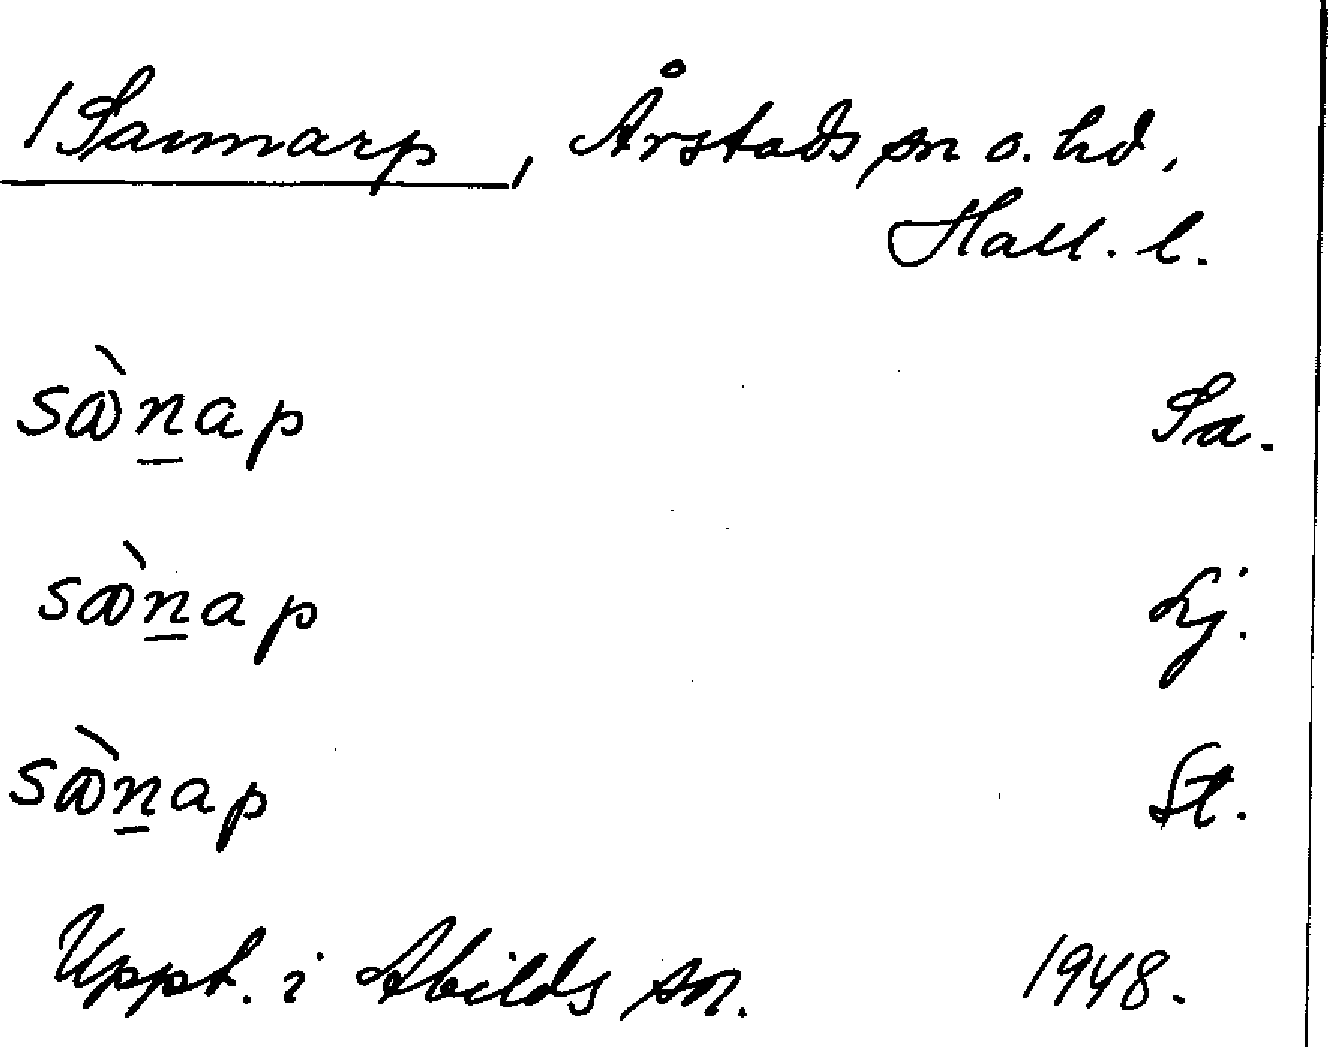 /Sannarp, Årstads sn o. hd,
Hall. l.
sàn̲ap Sa.
sàn̲ap Lj.
sàn̲ap St.
Uppt. i Abilds sn. 1948.